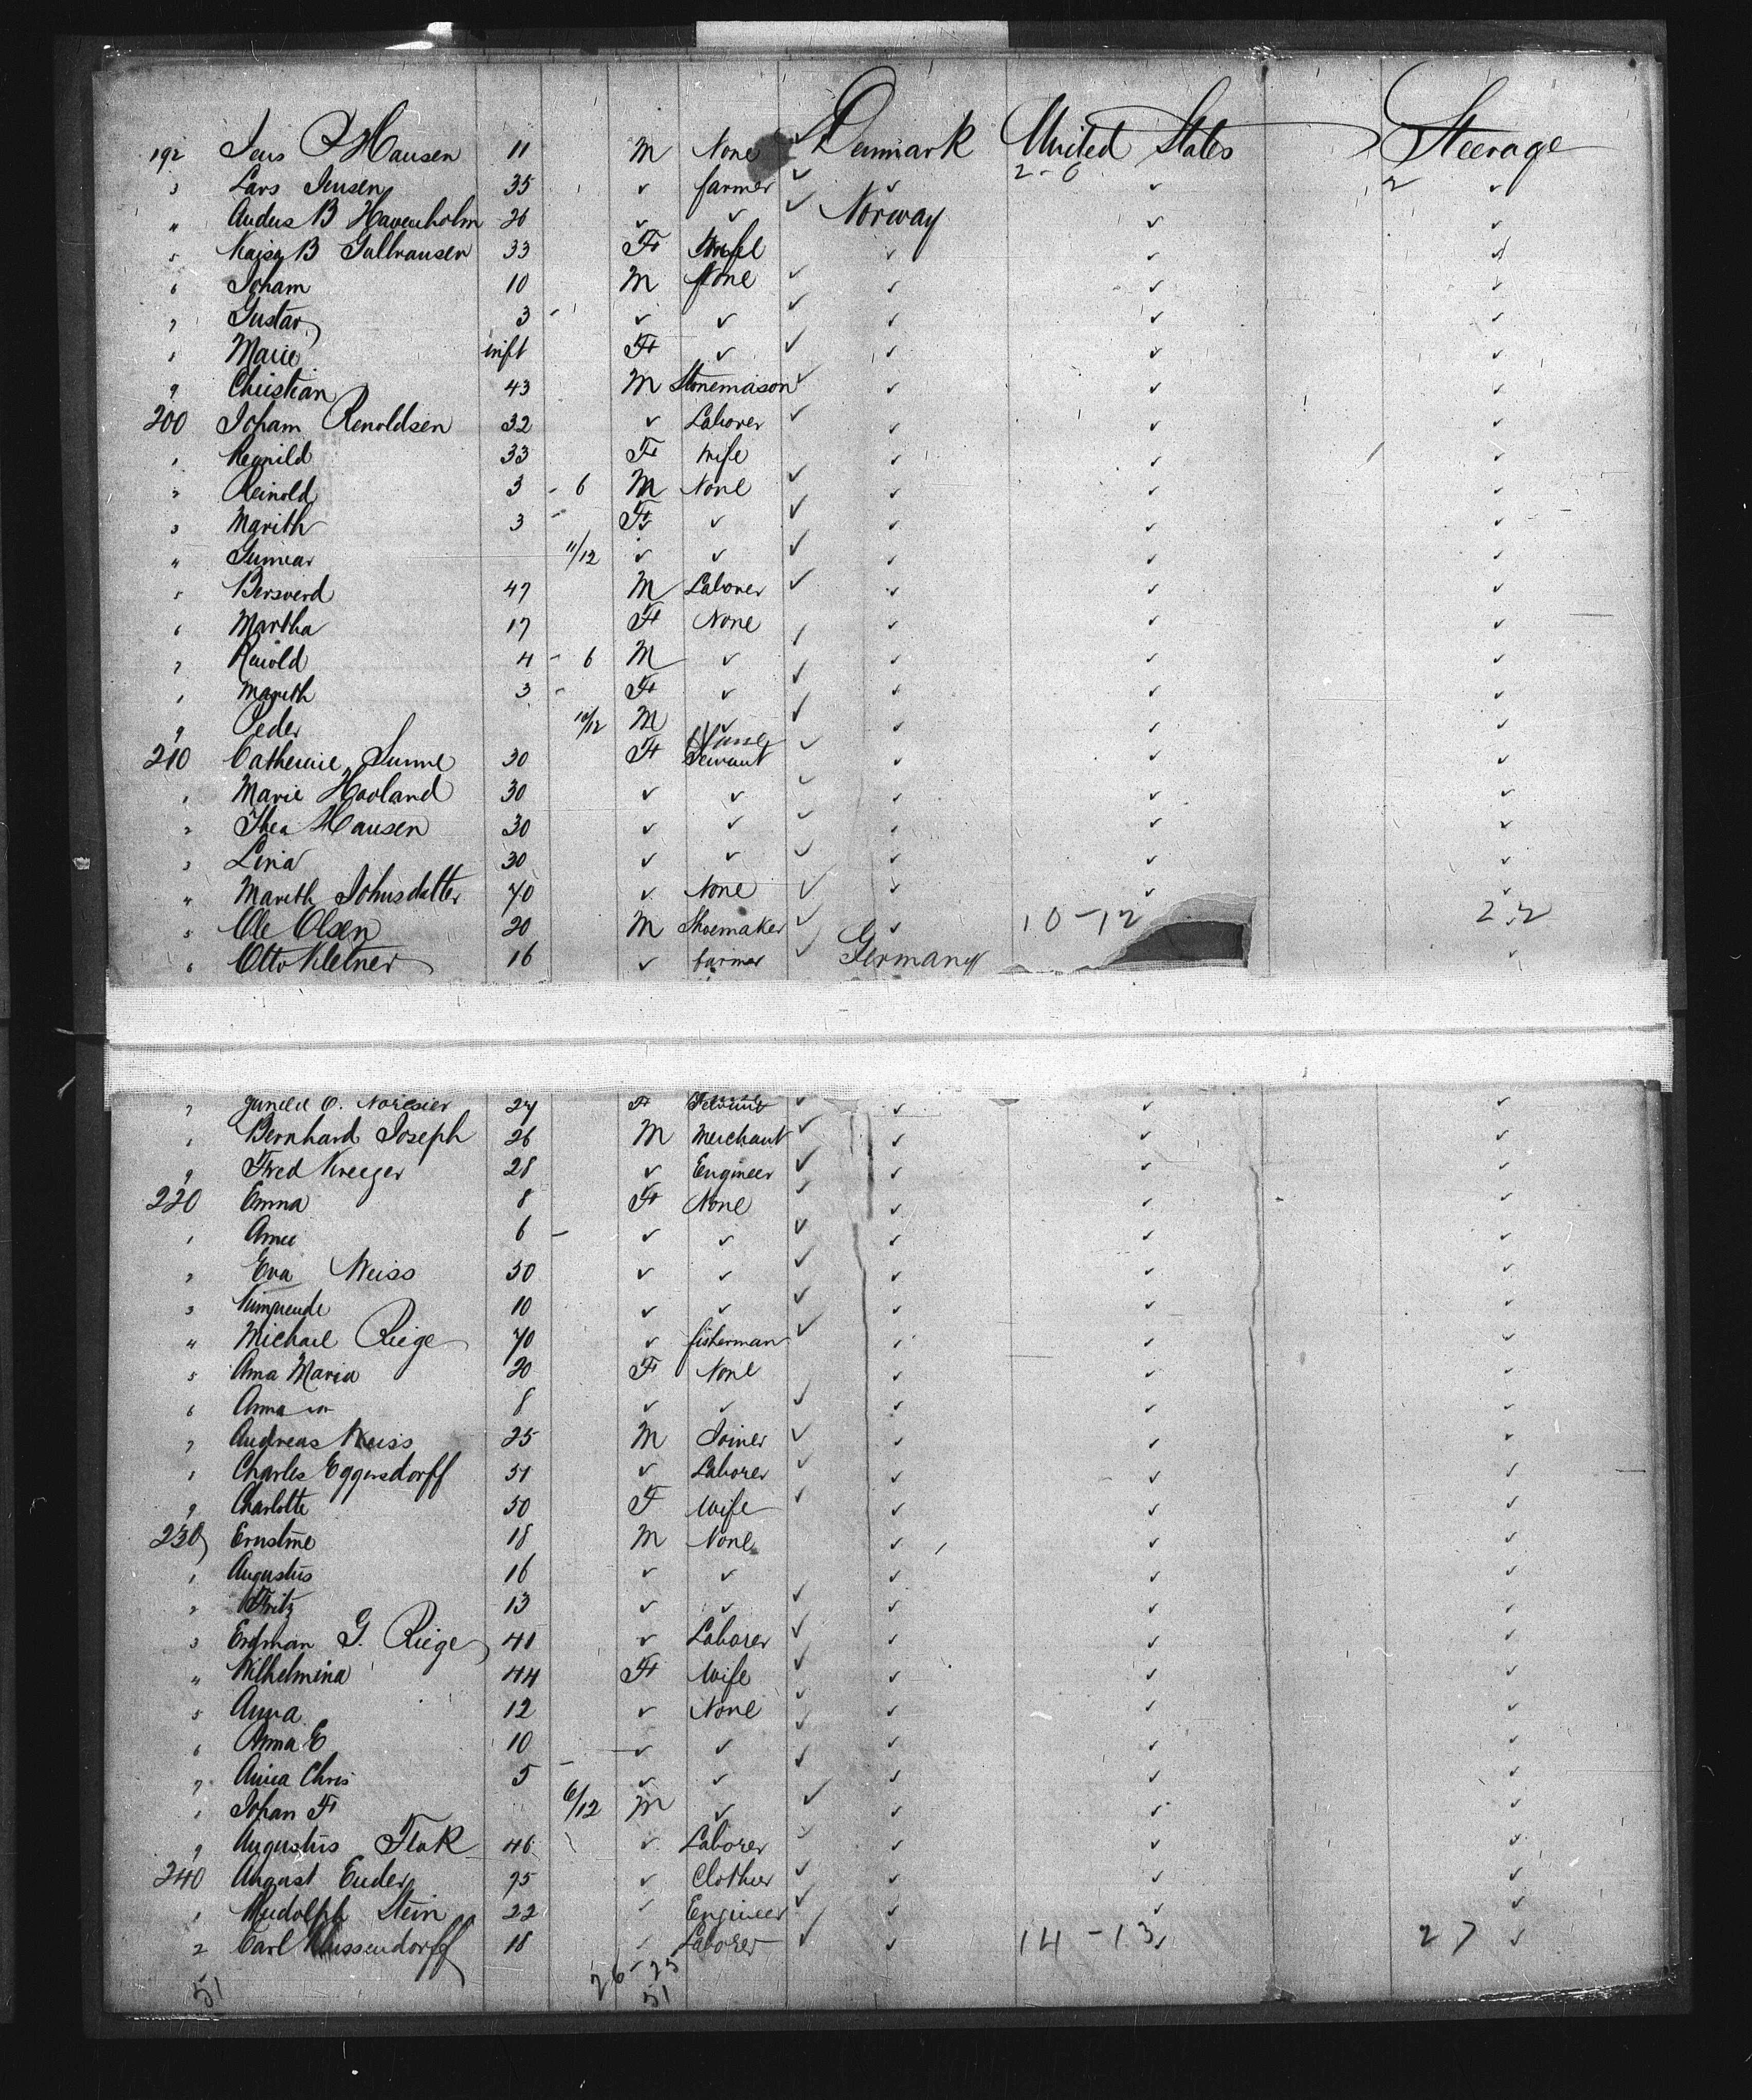 192 Jens P Hansen 11 M None ✓ Denmark United States Steerage
3 Lars Jensen 35 ✓ farmer ✓ ✓ 2-0 ✓ 2 ✓
4 Andus B Havenholm 26 ✓ ✓ ✓ Norway ✓ ✓
5 Kajsa B Gulbransen 33 F Wife ✓ ✓ ✓
6 Joham 10 M None ✓ ✓ ✓ ✓
7 Gustav 3 - ✓ ✓ ✓ ✓ ✓ ✓
8 Marie inft F ✓ ✓ ✓ ✓ ✓
9 Christian 43 M Stonemason ✓ ✓ ✓ ✓
200 Joham Renoldsen 32 ✓ Laborer ✓ ✓ ✓ ✓
1 Regnild 33 F Wife ✓ ✓ ✓
2 Reinold 3 - 6 M None ✓ ✓ ✓ ✓
3 Marith 3 - F ✓ ✓ ✓ ✓ ✓
4 11/12 ✓ ✓ ✓ ✓ ✓ ✓
5 Bersverd 47 M Laborer ✓ ✓ ✓ ✓
6 Martha 17 F None ✓ ✓ ✓ ✓
7 Reiold 4 - 6 M ✓ ✓ ✓ ✓ ✓
8 Marith 3 - F ✓ ✓ ✓ ✓ ✓
9 Peder 10/12 M ✓ ✓ ✓ ✓ ✓
210 Catherine Sunne 30 F Servant ✓ ✓ ✓ ✓
1 Marie Hovland 30 ✓ ✓ ✓ ✓ ✓ ✓
2 Thea Hansen 30 ✓ ✓ ✓ ✓ ✓ ✓
3 Lina 30 ✓ ✓ ✓ ✓ ✓ ✓
4 Marith Johnsdatter 70 ✓ None ✓ ✓ ✓ ✓
5 Ole Olsen 20 M Shoemaker ✓ ✓ 10-12 22
6 Otto Kletner 16 ✓ farmer ✓ Germany ✓
7 27 F Servant ✓ ✓ ✓ ✓
8 Bernhard Joseph 26 M Merchant ✓ ✓ ✓ ✓
9 Fred Kreeger 28 ✓ Engineer ✓ ✓ ✓ ✓
220 Emma 8 F None ✓ ✓ ✓ ✓
1 6 - ✓ ✓ ✓ ✓ ✓ ✓
2 Eva Weiss 50 ✓ ✓ ✓ ✓ ✓ ✓
3 10 ✓ ✓ ✓ ✓ ✓ ✓
4 Michael Riege 70 ✓ fisherman ✓ ✓ ✓ ✓
5 Anna Maria 20 F None ✓ ✓ ✓
6 Anna 8 ✓ ✓ ✓ ✓ ✓ ✓
7 Andreas Weiss 25 M Joiner ✓ ✓ ✓ ✓
8 Charles Eggersdorff 51 ✓ Laborer ✓ ✓ ✓ ✓
9 Charlotte 50 F Wife ✓ ✓ ✓ ✓
230 Ernstine 18 M None ✓ ✓ ✓
1 Augustus 16 ✓ ✓ ✓ ✓ ✓
2 Fritz 13 ✓ ✓ ✓ ✓ ✓ ✓
3 Erdman G. Riege 41 ✓ Laborer ✓ ✓ ✓ ✓
4 Wilhelmina 44 F Wife ✓ ✓ ✓ ✓
5 Anna 12 ✓ None ✓ ✓ ✓ ✓
6 Anna E 10 ✓ ✓ ✓ ✓ ✓ ✓
7 Anna Chris 5 - ✓ ✓ ✓ ✓ ✓ ✓
8 Johan F 6/12 M ✓ ✓ ✓ ✓ ✓
9 Augustus Flak 46 ✓ Laborer ✓ ✓ ✓ ✓
240 August Ender ✓ Clothier ✓ ✓ ✓ ✓
1 Rudolph Stein 22 ✓ Engineer ✓ ✓ ✓ ✓
2 Carl 18 ✓ Laborer ✓ ✓ 14-13 ✓ 27 ✓
51 26-25
51